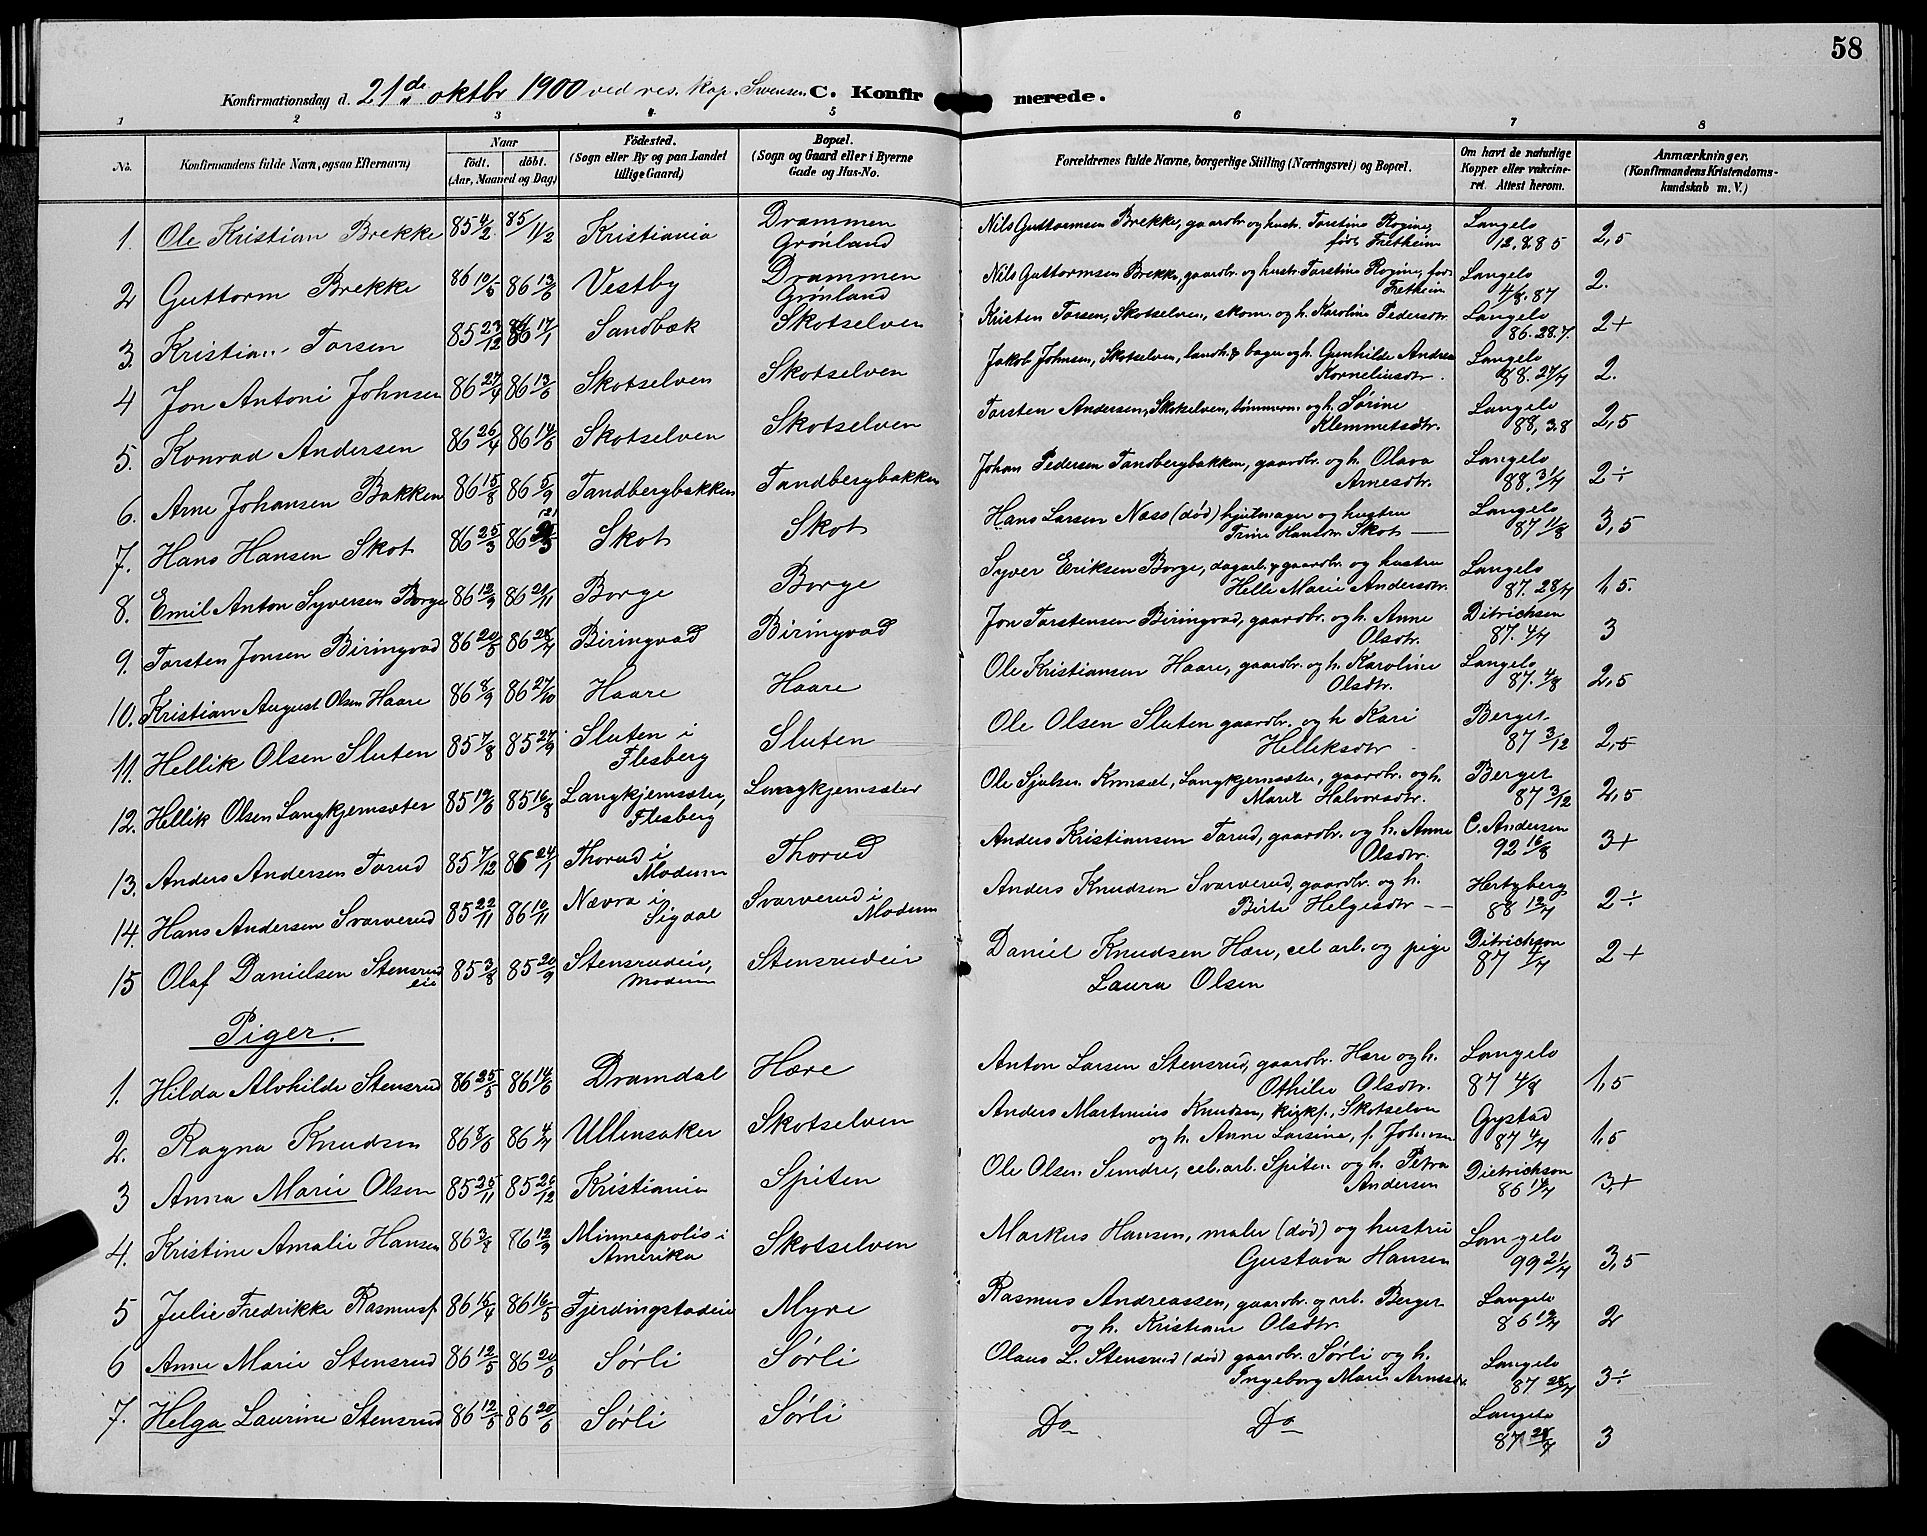 58
Konfirmationsdag d. 21de oktbr 1900 ved res. kap. Svensen. C. Konfirmerede.
1 2 3 4 5 6 7 8
No. Konfirmandens fulde Navn, ogsaa Efternavn) Naar født. døbt. (Aar, Maaned og Dag) Fødested. (Sogn eller By og paa Landet tillige Gaard) Bopæl. (Sogn og Gaard eller i Byerne Gade og Hus-No. Forældrenes fulde Navne, borgerlige Stilling (Næringsvei) og Bopæl. Om havt de naturlige Kopper eller vakcineret. Attest herom. Anmærkninger. (Konfirmandens Kristendomskundskab m. V.)
1. Ole Kristian Brekke 85 4/2 85 11/2 Kristiania Drammen Grønland Nils Guttormsen Brekke, gaardbr. og hustr. Torstine Regine, født Fretheim Langelo 12.8.85 2,5
2 Guttorm Brekke 86 10/5 86 13/6 Vestby Drammen Grønland Nils Guttormsen Brekke, gaardbr. og hustr. Torstine Regine, født Fretheim Langelo 4/8. 87 2.
3. Kristian Torsen 85 23/12 86 17/1 Sandbæk Skotselven Kristen Torsen, Skotselven, skom. og h. Karoline Pedersdtr. Langelo 86. 28.7. 2+
4 Jon Antoni Johnsen 86 27/4 86 13/6 Skotselven Skotselven Jakob Johnsen, Skotselven, landh. & bager og h. Gunhilde Andrea Korneliusdtr. Langelo 88. 27/7 2.
5. Konrad Andersen 86 26/4 86 14/6 Skotselven Skotselven Torsten Andersen, Skotselven, tømmerm. og h. Sørine Klemmetsdtr. Langelo 88, 3.8 2,5
6. Arne Johansen Bakken 86 15/8 86 5/9 Tandbergbakken Tandbergbakken Johan Pedersen Tandbergbakken, gaardbr. og h. Olava Arnesdtr. Langelo 88. 31/7 2÷
7. Hans Hansen Skot 86 25/3 86 Skot Skot Hans Larsen Næss (død) hjulmager og hustru Trine Hansdtr. Skot — Langelo 87 11/8 3,5
8. Emil Anton Syversen Borge 86 12/9 86 21/11 Borge Borge Syver Eriksen Borge, dagarb. & gaardbr. og hustru Helle Marie Andersdtr. Langelo 87. 28/7 1,5.
9. Torsten Jonsen Biringvad 86 20/5 86 28/7 Biringvad Biringvad Jon Torstensen Biringvad, gaardbr. og h. Anne Olsdtr. Ditrichsen 87. 4/7 3
10. Kristian August Olsen Haare 86 8/9 86 27/10 Haare Haare Ole Kristiansen Haare, gaardbr. og h. Karoline Olsdtr. Langelo 87. 4/8 2,5
11. Hellik Olsen Sluten 85 7/8 85 27/9 Sluten i Flesberg Sluten Ole Olsen Sluten gaardbr. og h Kari Helleksdtr Berget 87 3/12 2,5
12. Hellik Olsen Langkjemsæter 85 19/6 85 16/8 Langkjemsæter, Flesberg Langkjemsæter Ole Sjulsen Langkjemsæter, gaardbr. og h. Marit Halvorsdtr. Berget 87 3/12 2,5
13. Anders Andersen Torud 85 7/12 86 24/1 Thorud i Modum Thorud Anders Kristiansen Torud, gaardbr. og h. Anne Olsdtr. C. Andersen 92 16/8 3+
14. Hans Andersen Svarverud 85 22/11 86 10/11 Nævra i Sigdal Svarverud i Modum Anders Knudsen Svarverud, gaardbr. og h. Birte Helgesdtr — Hertzberg 88 12/7 2÷
15 Olaf Danielsen Stensrudeie 85 3/8 85 20/9 Stensrudeie, Modum Stensrudeie Daniel Knudsen Hære, cel arb. og pige Laura Olsen Ditrichson 87 1/7 2+
Piger.
1. Hilda Alvhilde Stensrud 86 25/5 86 14/6 Dramdal Hære Anton Larsen Stensrud, gaardbr. Hære og h. Othilie Olsdtr. Langelo 87 4/8 1,5
2. Ragna Knudsen 86 8/5 86 4/7 Ullensaker Skotselven Anders Martinius Knudsen, kirkes., Skotselven og h. Anne Larsine, f. Johnsen Gystad 87 4/7 1,5
3 Anna Marie Olsen 85 25/11 85 26/12 Kristiania Spiten Ole Olsen Sundre, cel. arb. Spiten og h. Petra Andersen Dietrichson 86 14/7 3+
4. Kristine Amalie Hansen 86 3/8 86 12/9 Minneapolis i Amerika Skotselven Markus Hansen, maler (død) og hustru Gustava Hansen Langelo 99 21/7 3,5
5 Julie Fredrikke Rasmusf. 86 16/4 86 16/5 Fjerdingstadeie Myre Rasmus Andreassen, gaardbr. og arb. Berget og h. Kristiane Olsdtr. Langelo 86 12/7 2
6 Anne Marie Stensrud 86 12/5 86 20/6 Sørli Sørli Olaus L. Stensrud (død) gaardbr. Sørli og h. Ingeborg Marie Arnesdtr. Langelo 87 28/7 3÷
7. Helga Laurine Stensrud 86 12/5 86 20/6 Sørli Sørli Do Do Langelo 87 28/7 3